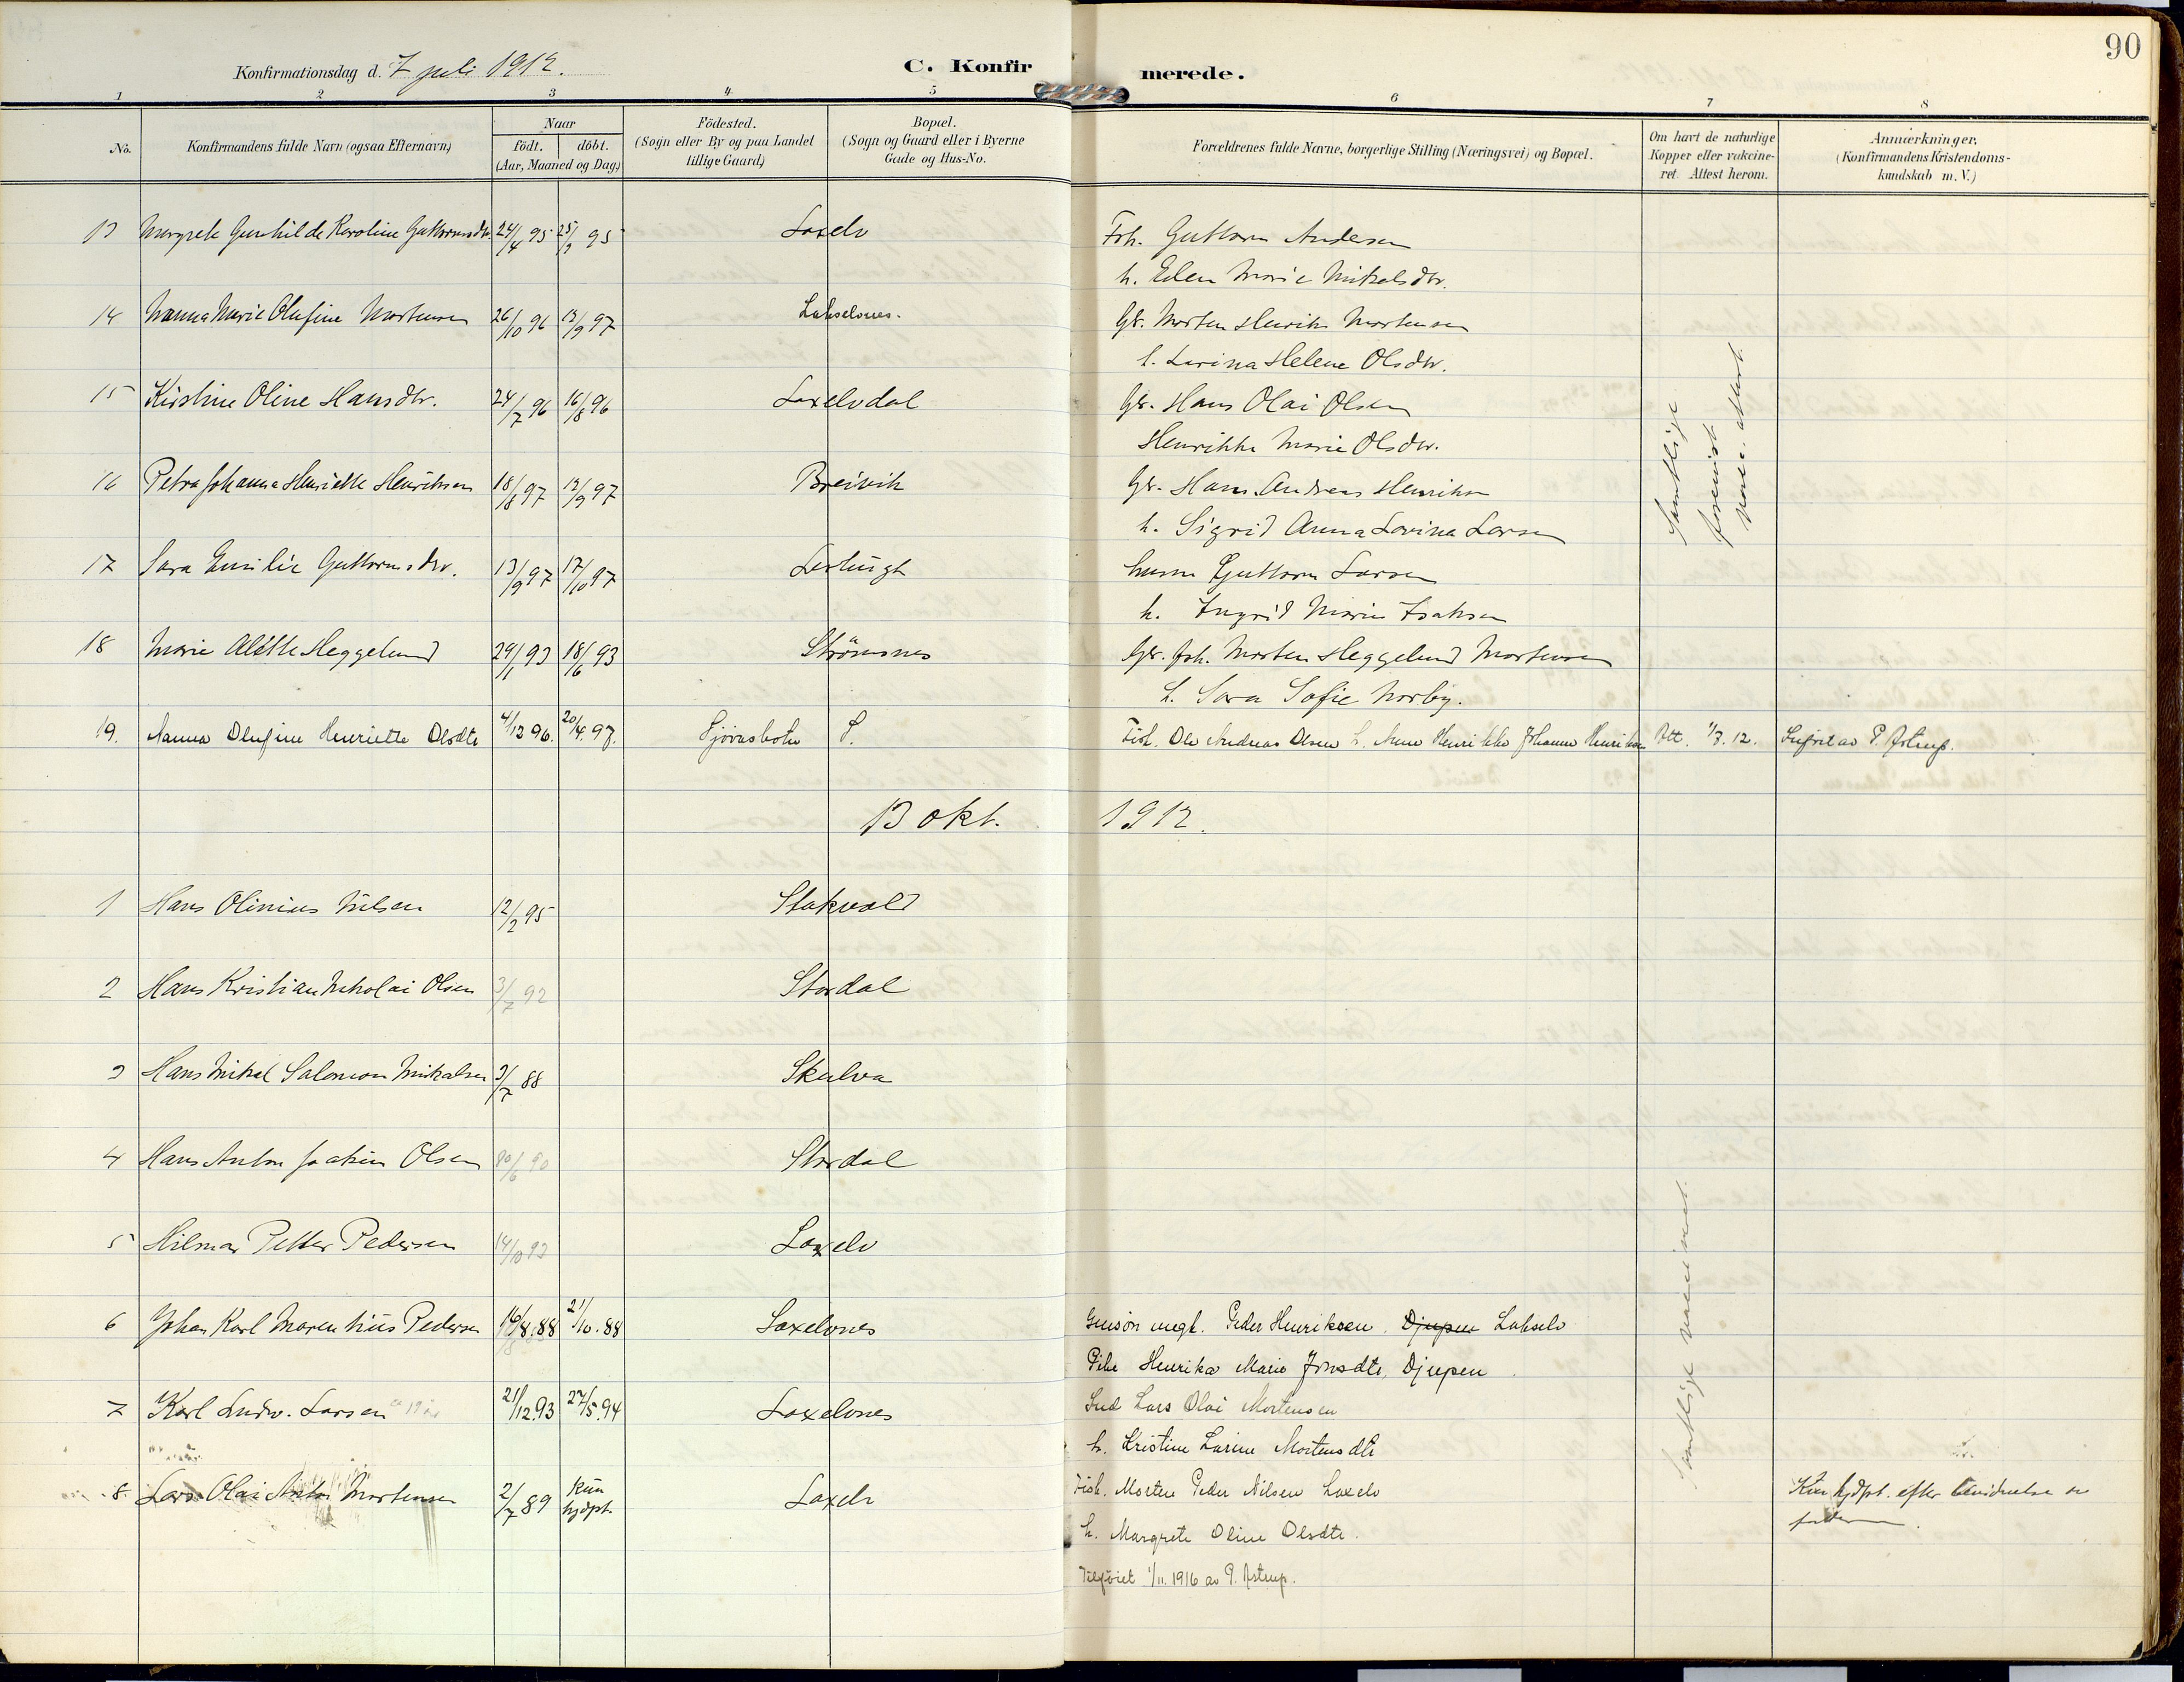 90
Konfirmationsdag d. 7 juli 1912.
C. Konfirmerede.
1 2 3 4 5 6 7 8
No.
Konfirmandens fulde Navn (ogsaa Efternavn)
Naar
födt. döbt.
(Aar, Maaned og Dag)
Födested.
(Sogn eller By og paa Landet
tillige Gaard)
Bopæl.
(Sogn og Gaard eller i Byerne
Gade og Hus-No.
Forældrenes fulde Navne, borgerlige Stilling (Næringsvei) og Bopæl.
Om havt de naturlige
Kopper eller vakcine-
ret. Attest herom.
Anmærkninger.
(Konfirmandens Kristendoms-
kundskab m. V.)
13 Margrete Gunhilde Karoline Guttormsdtr. 24/4 95 95 Laxelv Fsk. Guttorm Andersen
h. Ellen Marie Mikalsdtr.
14 Nanna Marie Olufine Mortensen 26/10 96 13/9 97 Lakselvnes. Gbr. Morten Henrik Mortensen
h. Larina Helene Olsdtr.
15 Kirstine Oline Hansdtr. 24/7 96 16/8 96 Laxelvdal Gbr. Hans Olai Olsen
Henrikke Marie Olsdtr.
16 Petra Johanna Henriette Henriksen 18/8 97 13/9 97 Breivik Gbr. Hans Andreas Henriksen
h. Sigrid Anna Lovina Larsen
17 Sara Emilie Guttormsdtr. 13/9 97 17/10 97 Guttorm Larsen
h. Ingrid Marie Isaksen
18 Marie Alette Heggelund 29/1 93 18/6 93 Strömsnes Gbr. Joh. Morten Heggelund Mortensen
h. Sara Sofie Norby.
Samtlige
forevist
vakc. attest.
19. Nanna Olufine Henriette Olsdtr 4/12 96. 20/4. 97. Sjövasbotn S. Fisk. Ole Andreas Olsen h. Anne Henrikke Johanne Henriksen Att. 1/7. 12. Inført av P. Astrup.
13 okt. 1912.
1 Hans Olinius Nilsen 12/2 95 Stakvold
2 Hans Kristian Nikolai Olsen 3/7 92 Stordal
3 Hans Mikal Salomon Mikalsen 3/7 88 Skulva
4 Hans Anton Joakim Olsen 30/6 90 Stordal
5 Hilmar Petter Pedersen 14/10 93 Laxelv
6 Johan Karl Marenthius Pedersen 16/8. 88 21/10. 88 Laxelvnes ungk. Peder Henriksen, Djupen Lakselv
Pike Henrika Marie Jonsdtr, Djupen
7 Karl Ludv. Larsen 21/12. 93 27/5. 94 Laxelvnes Ind Lars Olai Mortensen
h. Kristine Larine Mortensdtr
8 Lars Olai Anton Mortensen 2/7 89 Kun
hjdpt. Laxelv Fisk. Morten Peder Nilsen Laxelv
h. Margrete Oline Olsdtr.
Samtlige vaccineret.
Kun hjdpt. efter av
faderen.
Tilføiet 1/11. 1916 av P. Astrup.